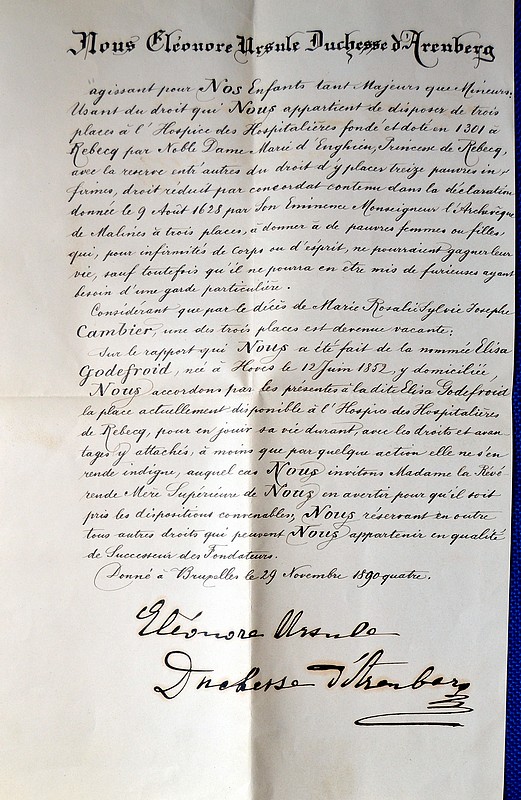 Nous Eléonore Ursule Duchesse d'Arenberg
agissant pour Nos Enfants tant Majeurs que Mineurs:
Usant du droit qui Nous appartient de disposer de trois
places à l'Hospice des Hospitalières fondé et doté en 1301 à
Rebecq par Noble Dame Marie d'Enghien, Princesse de Rebecq,
avec la reserve entr'autres du droit d'y placer treize pauvres in-
firmes, droit réduit par concordat contenu dans la déclaration
donnée le 9 Août 1628 par Son Eminence Monseigneur l'Archevêque
de Malines à trois places, à donner à de pauvres femmes ou filles,
qui, pour infirmités de corps ou d'esprit, ne pourraient gagner leur
vie, sauf toutefois qu'il ne pourra en être mis de furieuses ayant
besoin d'une garde particulière.
Considérant que par le décès de Marie Rosalie Sylvie Josephe
Cambier, une des trois places est devenue vacante;
Sur le rapport qui Nous a été fait de la nommée Elisa
Godefroid, née à Hoves le 12 Juin 1852, y domiciliée,
Nous accordons par les présentes à la dite Elisa Godefroid
la place actuellement disponible à l'Hospice des Hospitalières
de Rebecq, pour en jouir sa vie durant, avec les droits et avan-
tages y attachés, à moins que par quelque action elle ne s'en
rende indigne, auquel cas Nous invitons Madame la Révé
rende Mère Supérieure de Nous en avertir pour qu'il soit
pris les dispositions convenables, Nous réservant en outre
tous autres droits qui peuvent Nous appartenir en qualité
de Successeur des Fondateurs.
Donné à Bruxelles le 29 Novembre 1890 quatre.
Eléonore Ursule
Duchesse d'Arenberg